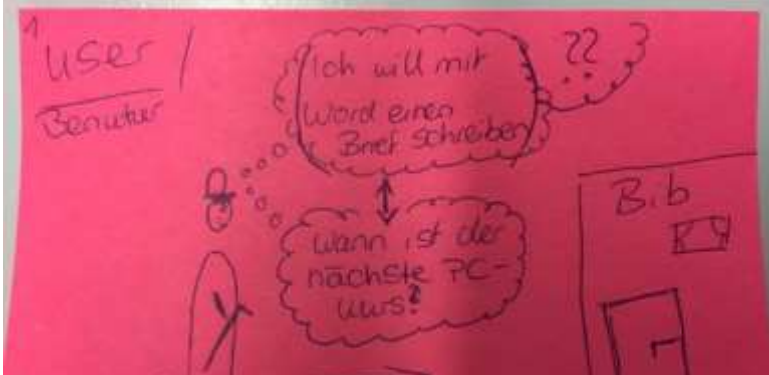 1
User /
Benutzer
Ich will mit
Word einen
Brief schreiben
??
Wann ist der
nächste PC-
Bib